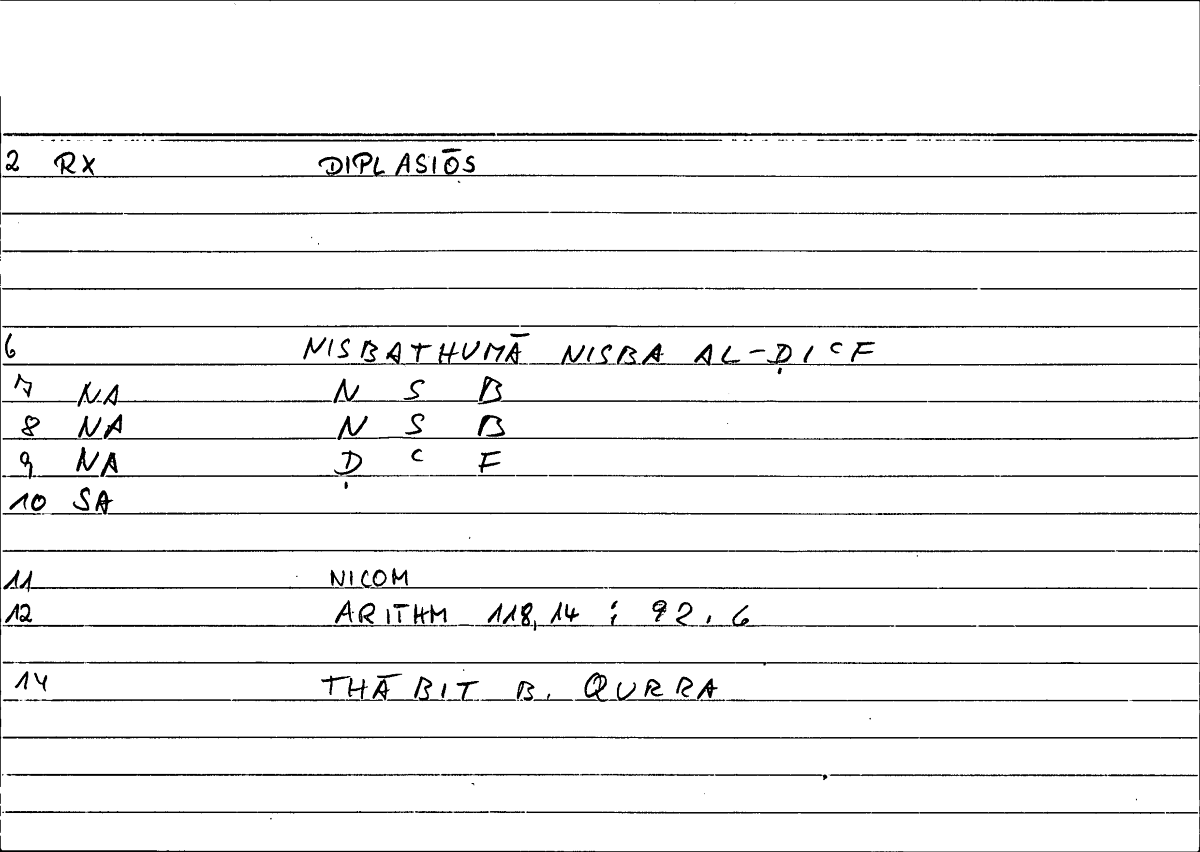 2 RX DIPLASIŌS
6 NISBATHUMĀ NISBA AL-ḌIꜤF
7 NA N S B
8 NA N S B
9 NA Ḍ Ꜥ F
10 SA
11 NICOM
12 ARITHM 118,14 ; 92.6
14 THĀBIT B. QURRA